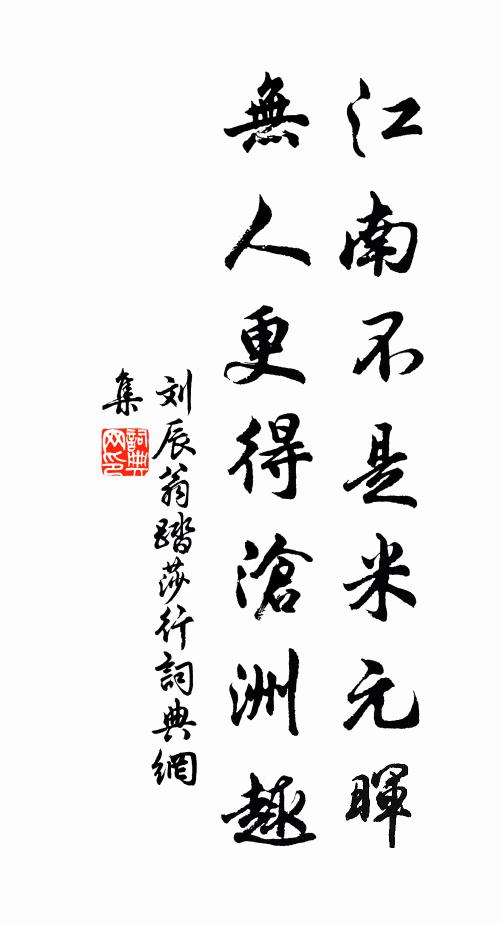 江南不是米元暉
無人更得滄洲趣
刘辰翁踏莎行詞典網
集
詞典网印